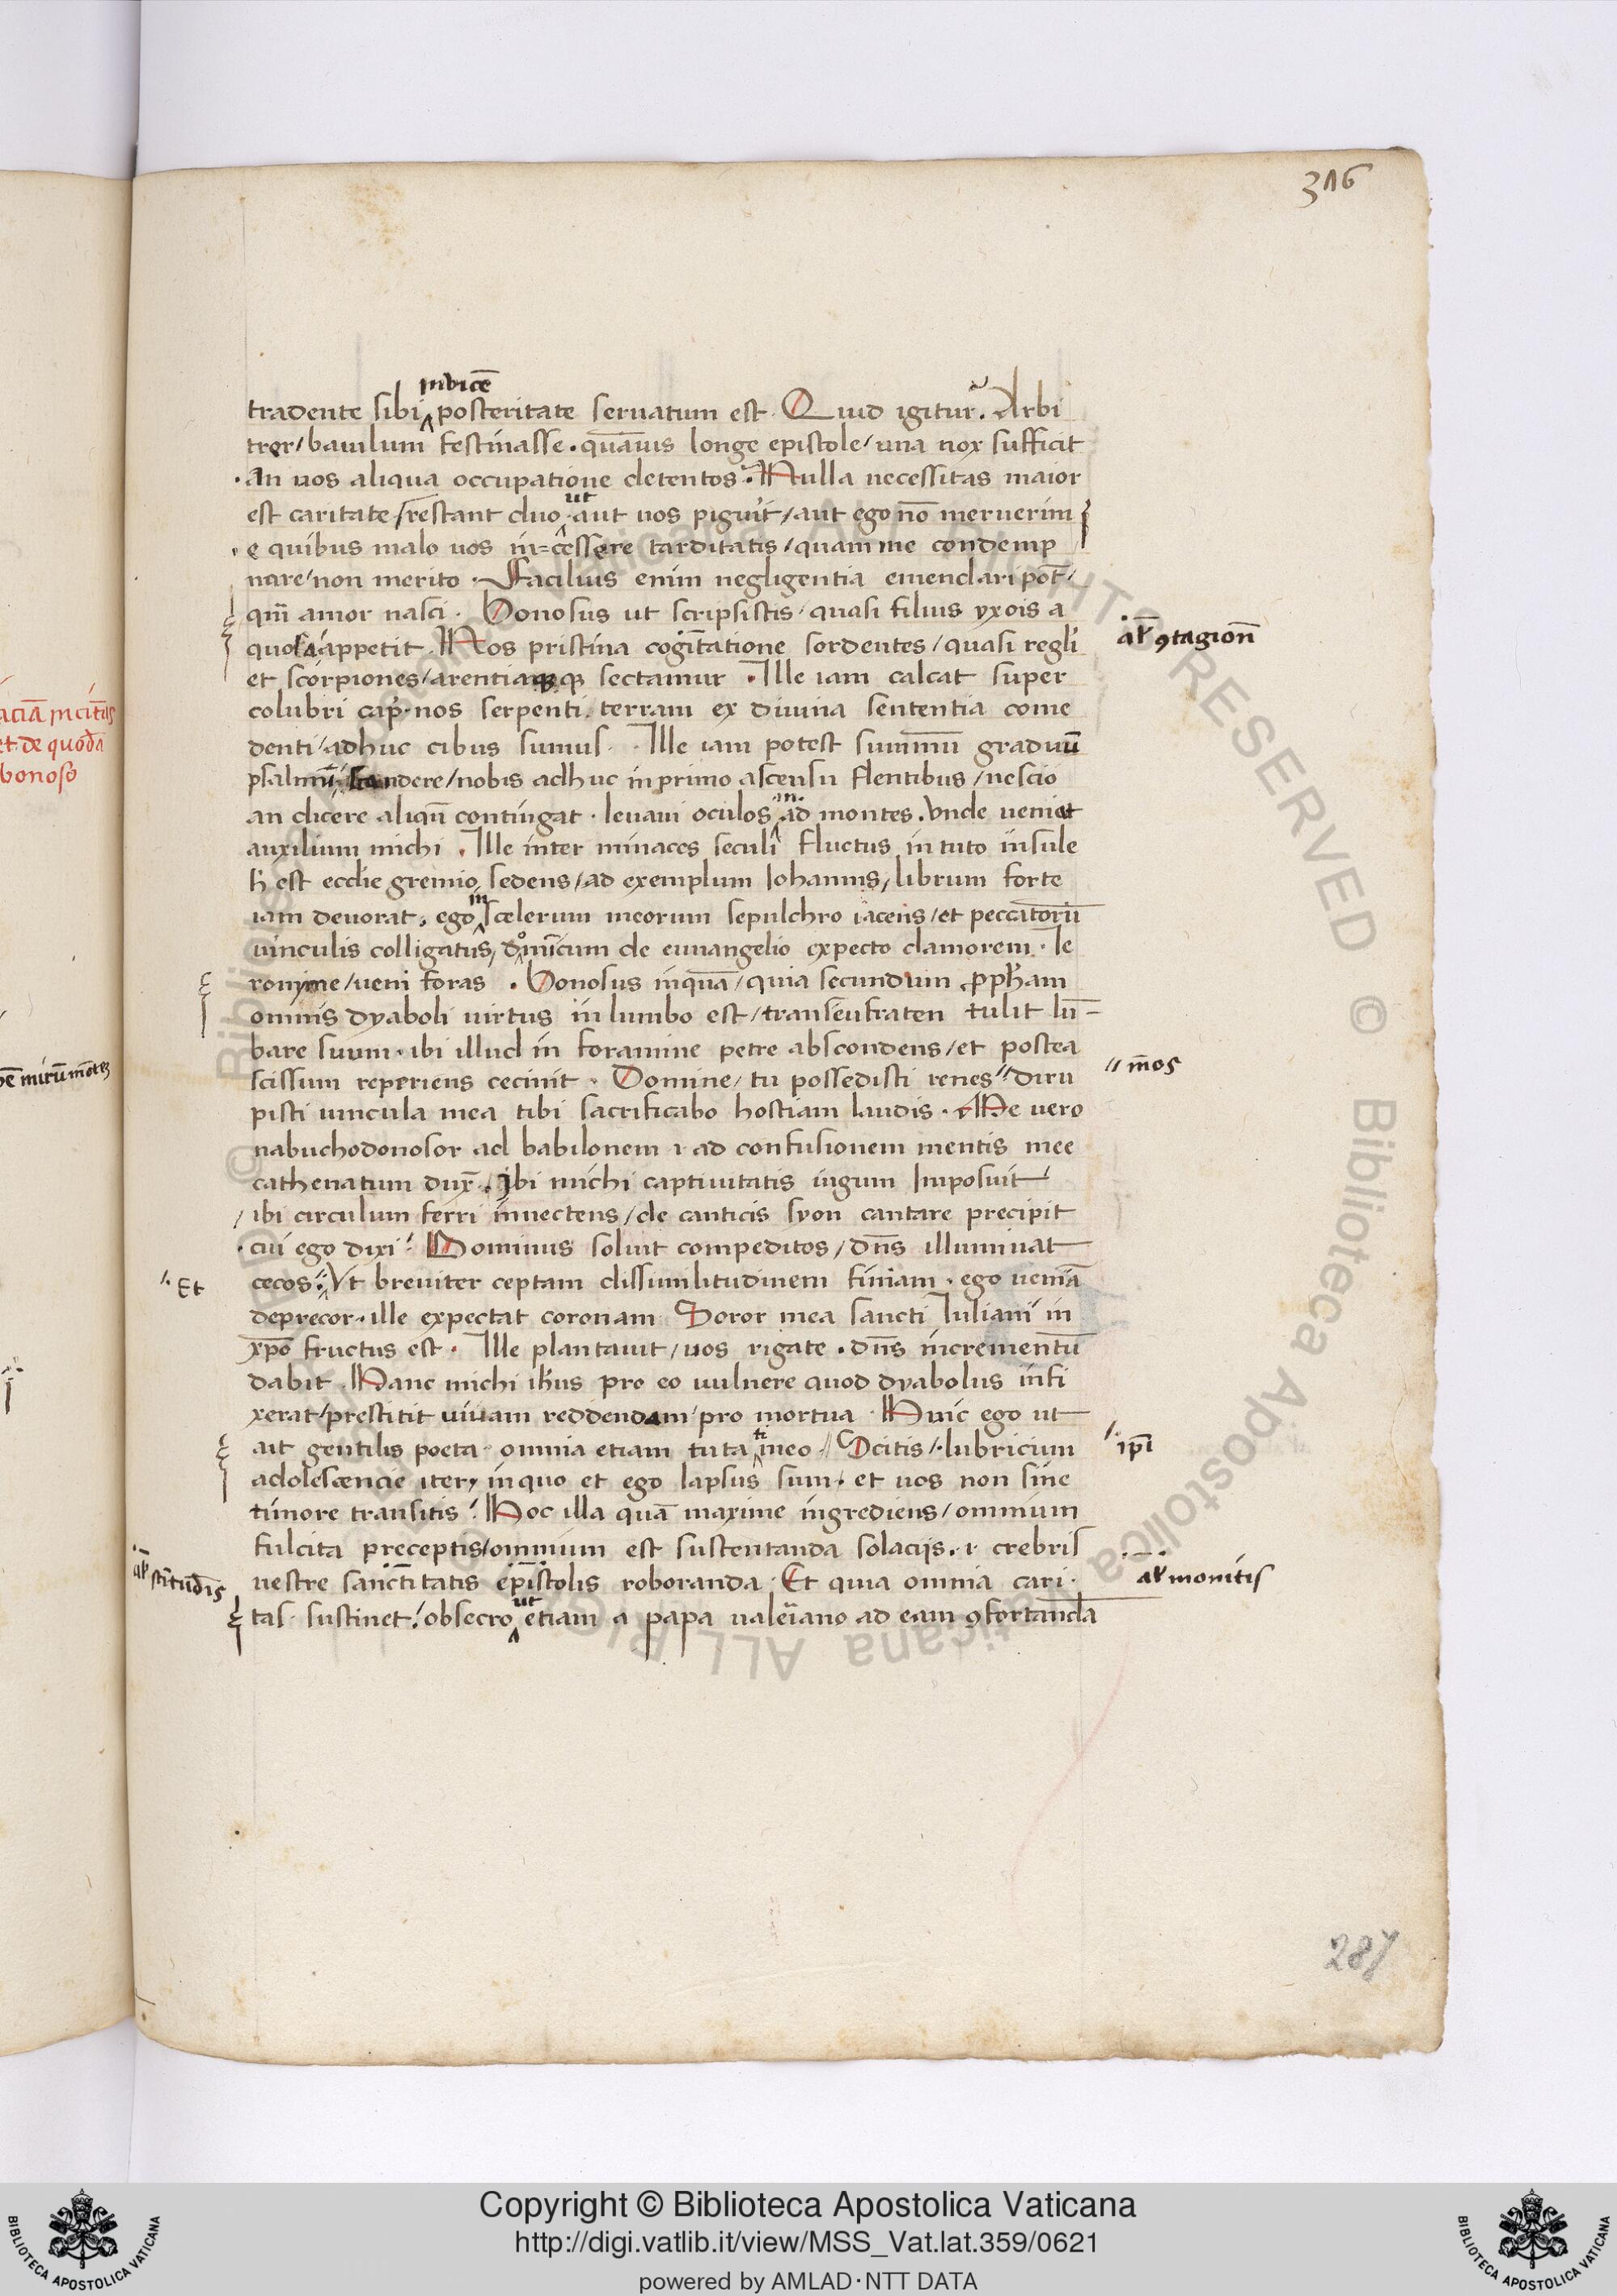 316
invicē
tradente sibi posteritate servatum est. Quid igitur? Arbi
tror / bauilum festinasse. quāuis longe epistole / una nox sufficit
·an uos aliqua occupatione detentos? Nulla necessitas maior
ut
est caritate / restant duo. aut uos piguit / aut ego nō meruerim
e quibus malo uos in=cessere tarditatis / quam me condemp
nare / non merito. Facilius enim negligentia emendari pōt /
qm̄ amor nasci. Bonosus ut scripsistis / quasi filius yxois a
quosa appetit. Nos pristina cogitatione sordentes / quasi regli
al' ꝯtagiōn
et scorpiones / arentia queque sectamur. Ille iam calcat super
colubri cap. nos serpenti. terram ex diuina sententia come
denti / adhuc cibus sumus. Ille iam potest summū graduū
psalmū scandere / nobis adhuc in primo ascensu flentibus / nescio
in
an dicere aliqn̄ contingat. leuaui oculos ad montes. Vnde ueniet
auxilium michi. Ille inter minaces seculi fluctus in tuto insule
h' est ecclie gremio sedens / ad exemplum Iohannis / librum forte
in
iam deuorat. ego scelerum meorum sepulchro iacens / et peccatorū
uinculis colligatus, dominicum de euuangelio expecto clamorem. Ie
ronyme / ueni foras. Bonosus inquā / quia secundum ꝓpham
omnis dyaboli uirtus in lumbo est / trans eufraten tulit lū-
bare suum. ibi illud in foramine petre abscondens / et postea
scissum reperiens cecinit. Domine / tu possedisti renes diru
// mēos
pisti uincula mea tibi sacrificabo hostiam laudis. Me uero
nabuchodonosor ad babilonem ı ad confusionem mentis mee
cathenatum dux̄. Ibi michi captiuitatis iugum Imposuit
/ ibi circulum ferri innectens / de canticis syon cantare precipit
·cui ego dixi? Dominus soluit compeditos / dn̄s illuminat
Et
cecos. Vt breuiter ceptam dissimilitudinem finiam. ego ueniā
deprecor. ille expectat coronam Soror mea sancti Iuliani in
xp̄o fructus est. Ille plantauit / uos rigate. dn̄s incrementū
dabit. Hanc michi ih̄us pro eo uulnere quod dyabolus infi
xerat / prestitit uiuam reddendam / pro mortua. Huic ego ut
ti
ait gentilis poeta. omnia etiam tuta meo. Scitis / lubricium
ip̄i
adolescencie iter, in quo et ego lapsus sum. et uos non sine
timore transitis! Hoc illa quā maxime ingrediens / omnium
fulcita preceptis / omnium est sustentanda solacijs. ı crebris
al' stītudīs
uestre sanctitatis epistolis roboranda. Et quia omnia cari·
al' monitis
ut
tas sustinet? obsecro etiam a papa ualeriano ad eam ꝯfortandā
287
aciā incitās
et de quodā
bonoso
Copyright © Biblioteca Apostolica Vaticana
http://digi.vatlib.it/view/MSS_Vat.lat.359/0621
powered by AMLAD·NTT DATA
BIBLIOTECA APOSTOLICA VATICANA
BIBLIOTECA APOSTOLICA VATICANA